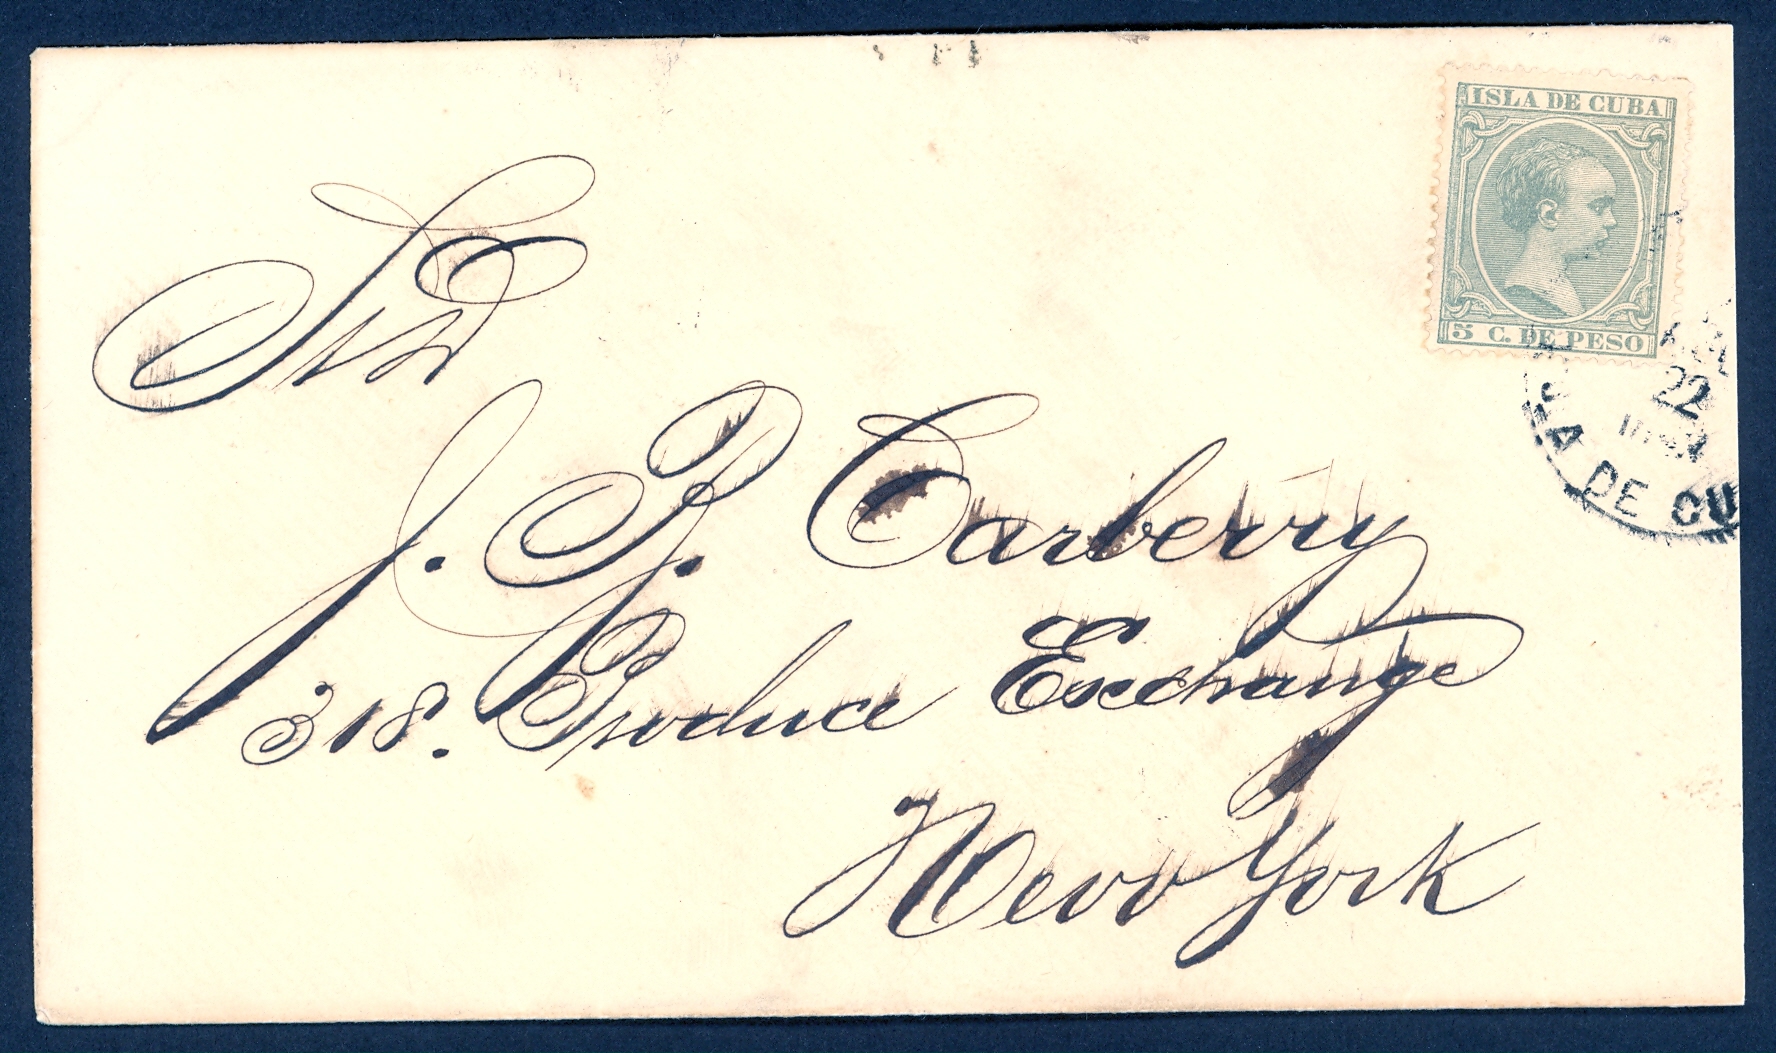 ISLA DE CUBA
5 C. DE PESO
22
A DE CU
Sr
J. P. Carberry
318. Produce Exchange
New York